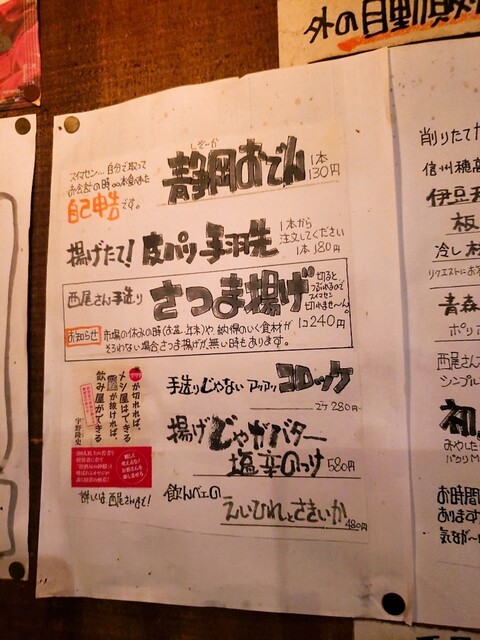 外の自動販
スイマセン…自分で取って
お会計の時〇〇本食べた
自己申告です。
しぞーか
静岡おでん 1本
130円
揚げたて! 皮パリ手羽先
1本から
注文してください
1本180円
西尾さん手造り さつま揚げ
切ると
つぶれるので
スイマセン
切れませ〜ん。
1コ240円
お知らせ 市場の休みの時(お盆、年末)や、納得のいく食材が
そろわない場合さつま揚げが、無い時もあります。
手造りじゃない アツアツ コロッケ
2ケ280円
揚げじゃがバター
塩辛のっけ 580円
飲んべェの
えいひれとさきいか
480円
トマトが切れれば、
メシ屋はできる
栓が抜ければ、
飲み屋ができる
宇野隆史
詳しくは西尾さんまで!
削りたてカ
信州穂高
伊豆天
板
冷し
リクエストにお
青森
ポリ
西尾さん
シンプル
初
みやした
パクリM
お時間
あります
気なが〜